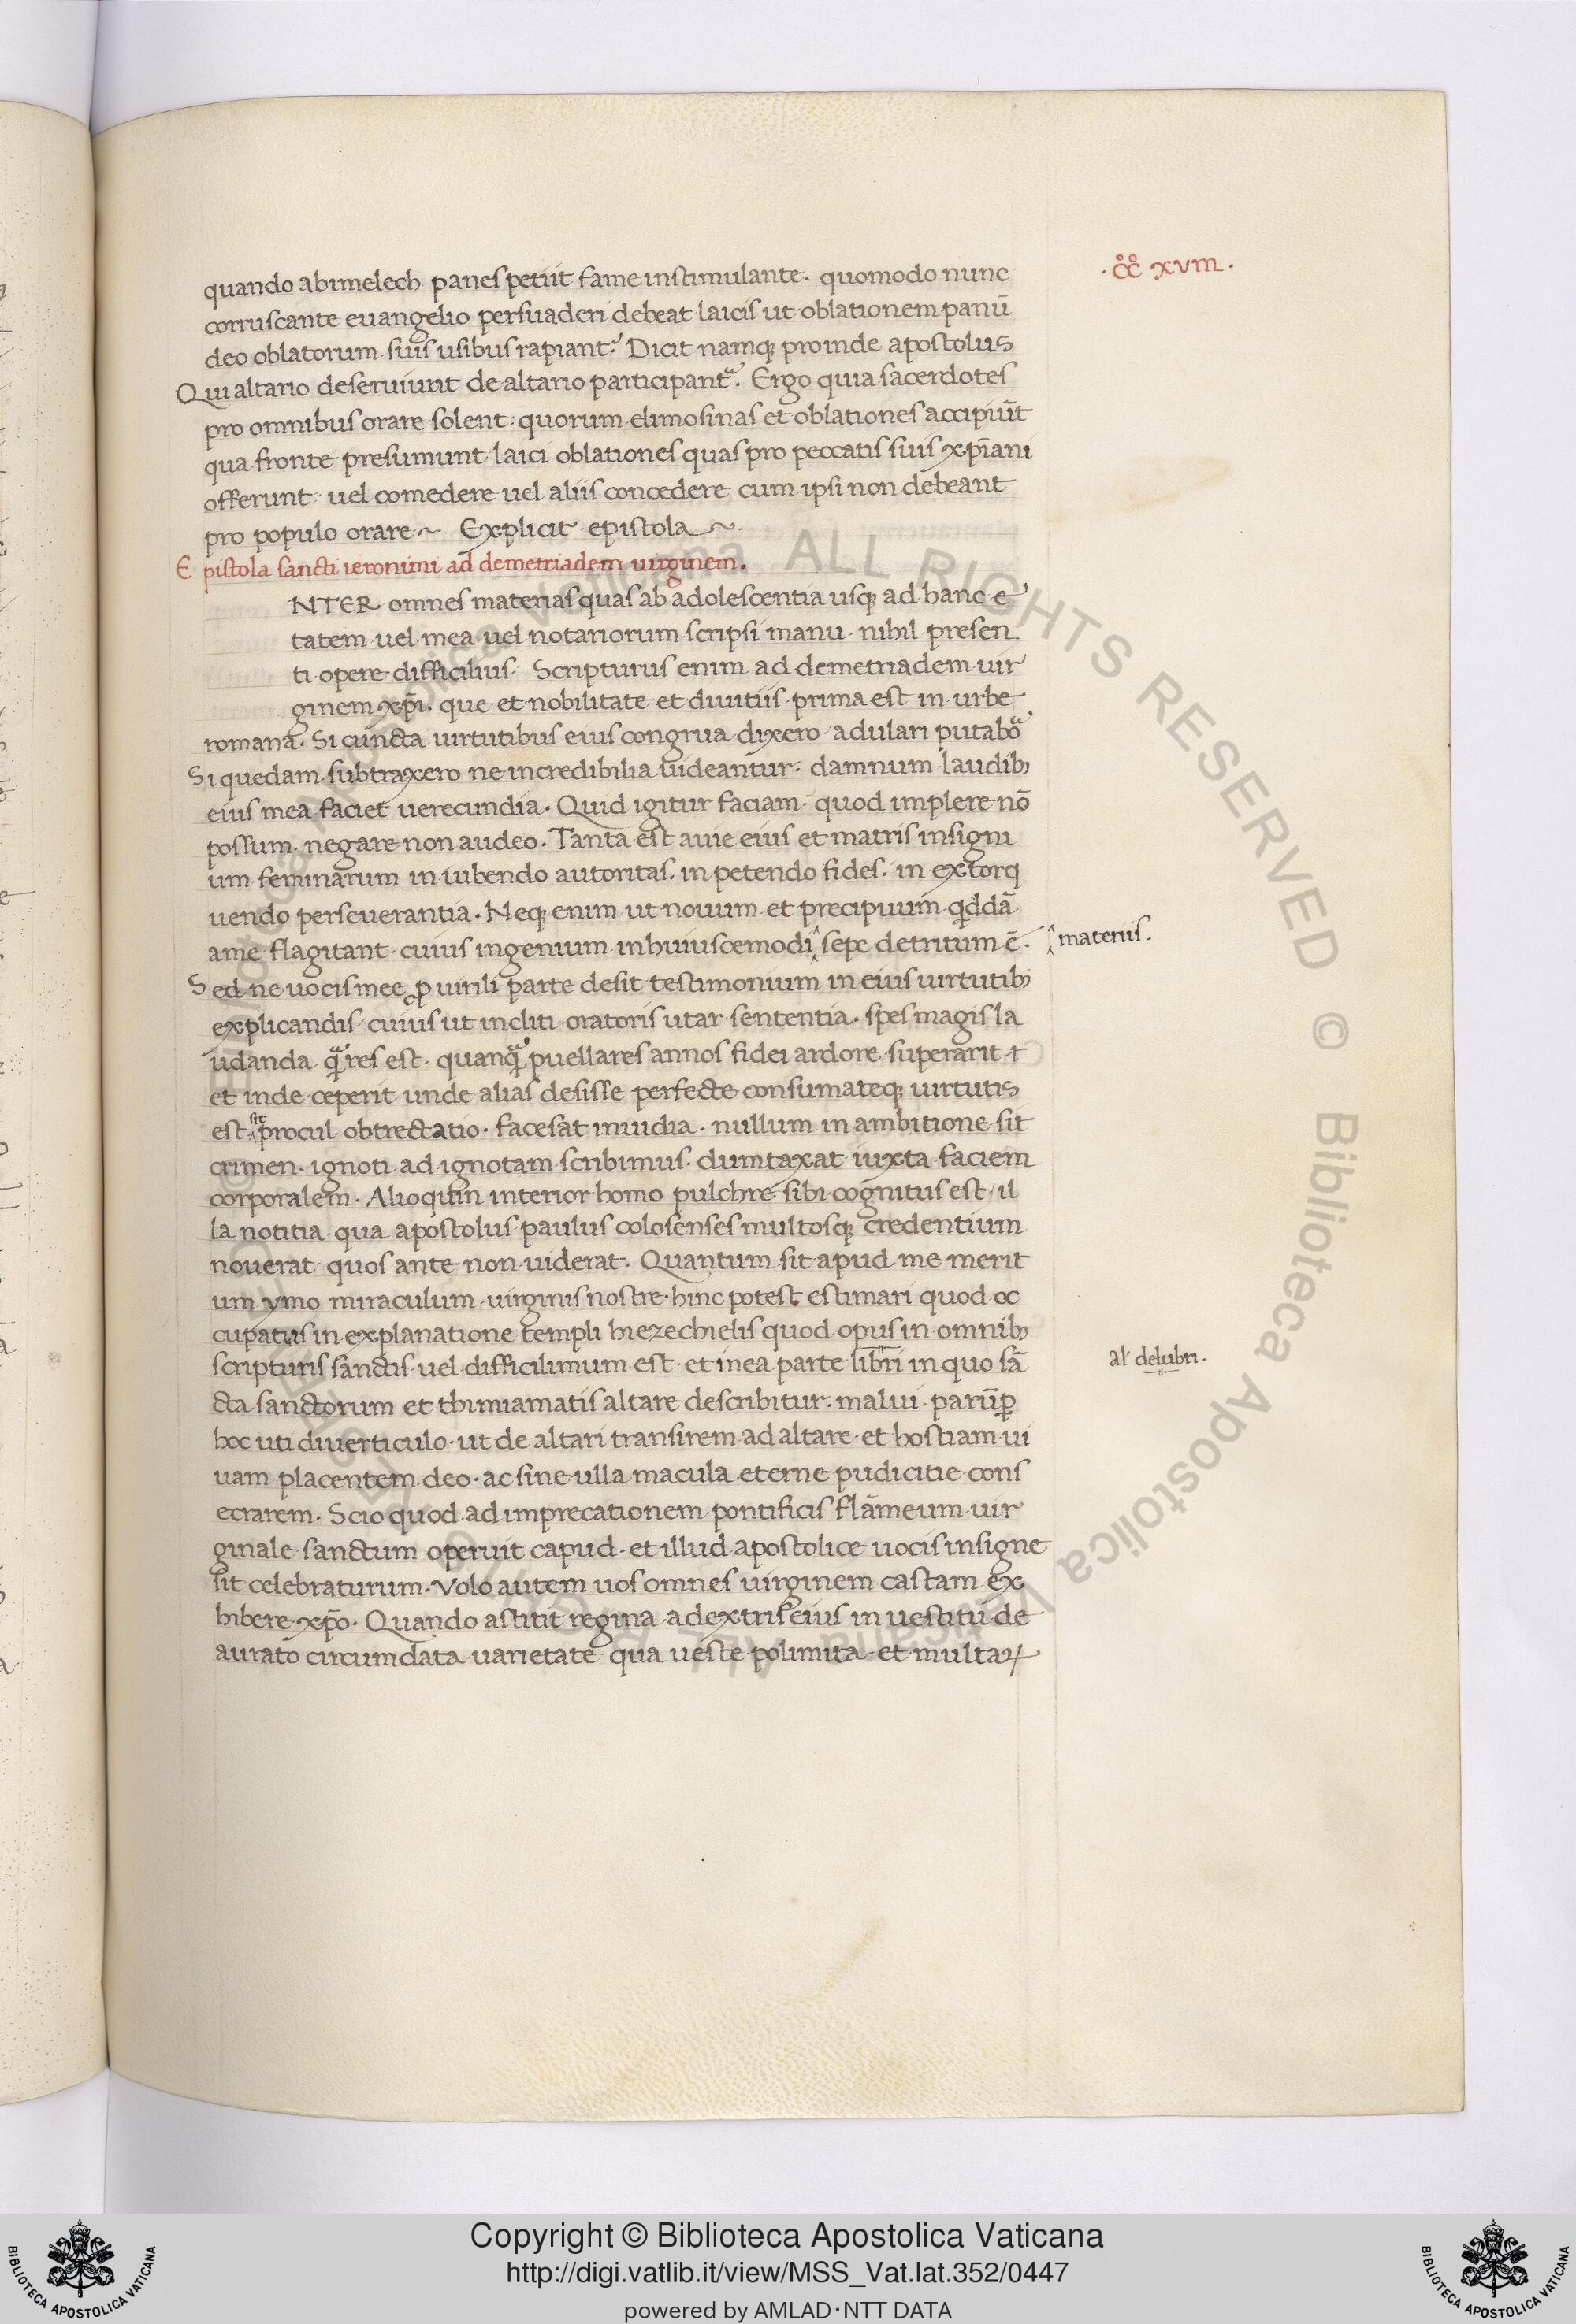 .c̊c̊c xvııı.
quando abimelech panes petiit fame instimulante. quomodo nunc
corruscante euangelio persuaderi debeat laicis ut oblationem panū
deo oblatorum suis usibus rapiant? Dicit namq; proinde apostolus
Qui altario deseruiunt de altario participantᷓ. Ergo quia sacerdotes
pro omnibus orare solent: quorum elimosinas et oblationes accipiūt
qua fronte presumunt laici oblationes quas pro peccatis suis xp̄iani
offerunt uel comedere uel aliis concedere cum ipsi non debeant
pro populo orare ~ Explicit epistola ~
Epistola sancti ieronimi ad demetriadem uirginem.
NTER omnes materias quas ab adolescentia usq; ad hanc e
tatem uel mea uel notariorum scripsi manu. nihil presen
ti opere difficilius. Scripturus enim ad demetriadem uir
ginem xp̄i. que et nobilitate et diuitiis prima est in urbe
romana. Si cuncta uirtutibus eius congrua dixero adulari putaboᷓ
Si quedam subtraxero ne incredibilia uideantur: damnum laudib;
eius mea faciet uerecundia. Quid igitur faciam. quod implere nō
possum. negare non audeo. Tanta est auie eius et matris insigni
um feminarum in iubendo autoritas. in petendo fides. in extorq
uendo perseuerantia. Neq; enim ut nouum et precipuum qddā
a me flagitant. cuius ingenium in huiuscemodi ^ sepe detritum ē. ^ materiis.
Sed ne uocis mee ꝓ uirili parte desit testimonium in eius uirtutib;
explicandis. cuius ut incliti oratoris utar sententia. spes magis la
udanda qᷓ res est. quanqᷓ puellares annos fidei ardore superarit
et inde ceperit unde alias desisse perfecte consumateq; uirtutis
est ^sit procul obtrectatio. facesat inuidia. nullum in ambitione sit
crimen. ignoti ad ignotam scribimus. dumtaxat iuxta faciem
corporalem. Alioquin interior homo pulchre sibi cognitus est / il
la notitia qua apostolus paulus colosenses multosq; credentium
nouerat quos ante non uiderat. Quantum sit apud me merit
um ymo miraculum uirginis nostre. hinc potest estimari quod oc
cupatus in explanatione templi hiezechielis quod opus in omnib;
scripturis sanctis uel difficilimum est. et in ea parte libri in quo sā al' delubri.
cta sanctorum et thimiamatis altare describitur. malui parūp
hoc uti diuerticulo. ut de altari transirem ad altare. et hostiam ui
uam placentem deo. ac sine ulla macula eterne pudicitie cons
ecrarem. Scio quod ad imprecationem pontificis flāmeum uir
ginale sanctum operuit capud. et illud apostolice uocis insigne
sit celebraturum. Volo autem uos omnes uirginem castam ex
hibere xp̄o. Quando astitit regina a dextris eius in uestitu de
aurato circumdata uarietate qua ueste polimita et multaꝝ
© Biblioteca Apostolica Vaticana ALL RIGHTS RESERVED © Biblioteca Apostolica Vaticana ALL RIGHTS RESERVED
Copyright © Biblioteca Apostolica Vaticana
http://digi.vatlib.it/view/MSS_Vat.lat.352/0447
powered by AMLAD·NTT DATA
BIBLIOTECA APOSTOLICA VATICANA
BIBLIOTECA APOSTOLICA VATICANA